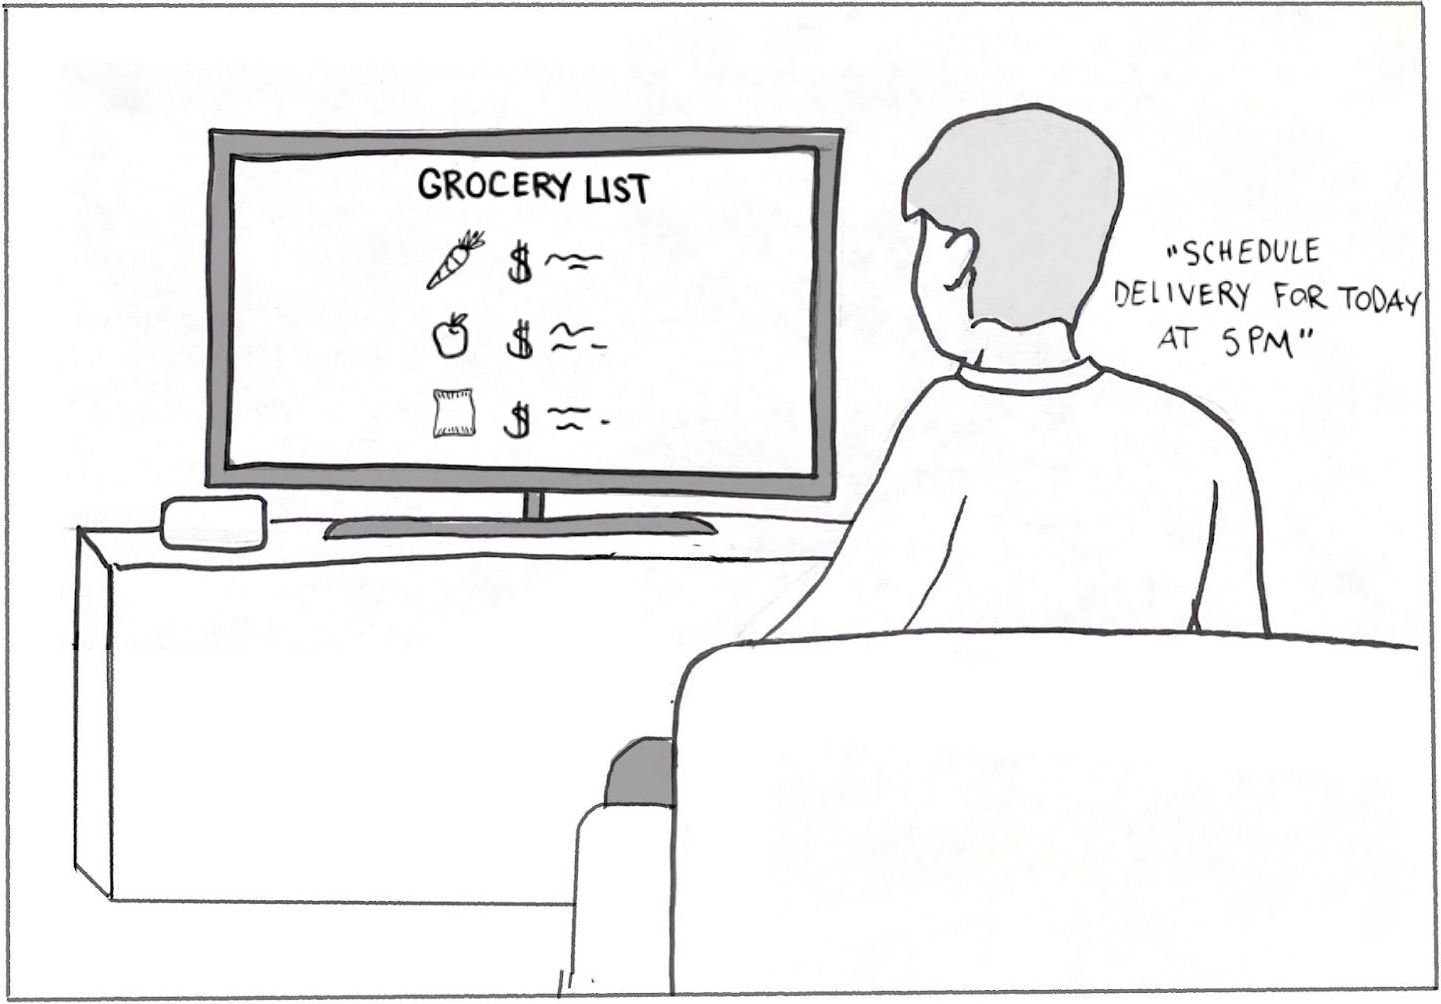 GROCERY LIST
$
$
$
"SCHEDULE
DELIVERY FOR TODAY
AT 5PM"